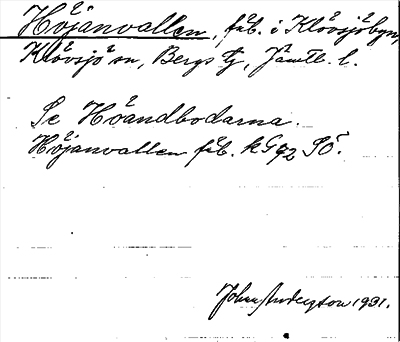 Höjanvallen, fäb. i Klövsjöbyn,
Klövsjö sn, Bergs tg, Jämtl. l.
Se Höandbodarna.
Höjanvallen fäb. kG92 SÖ.
Johan Andersson 1931.